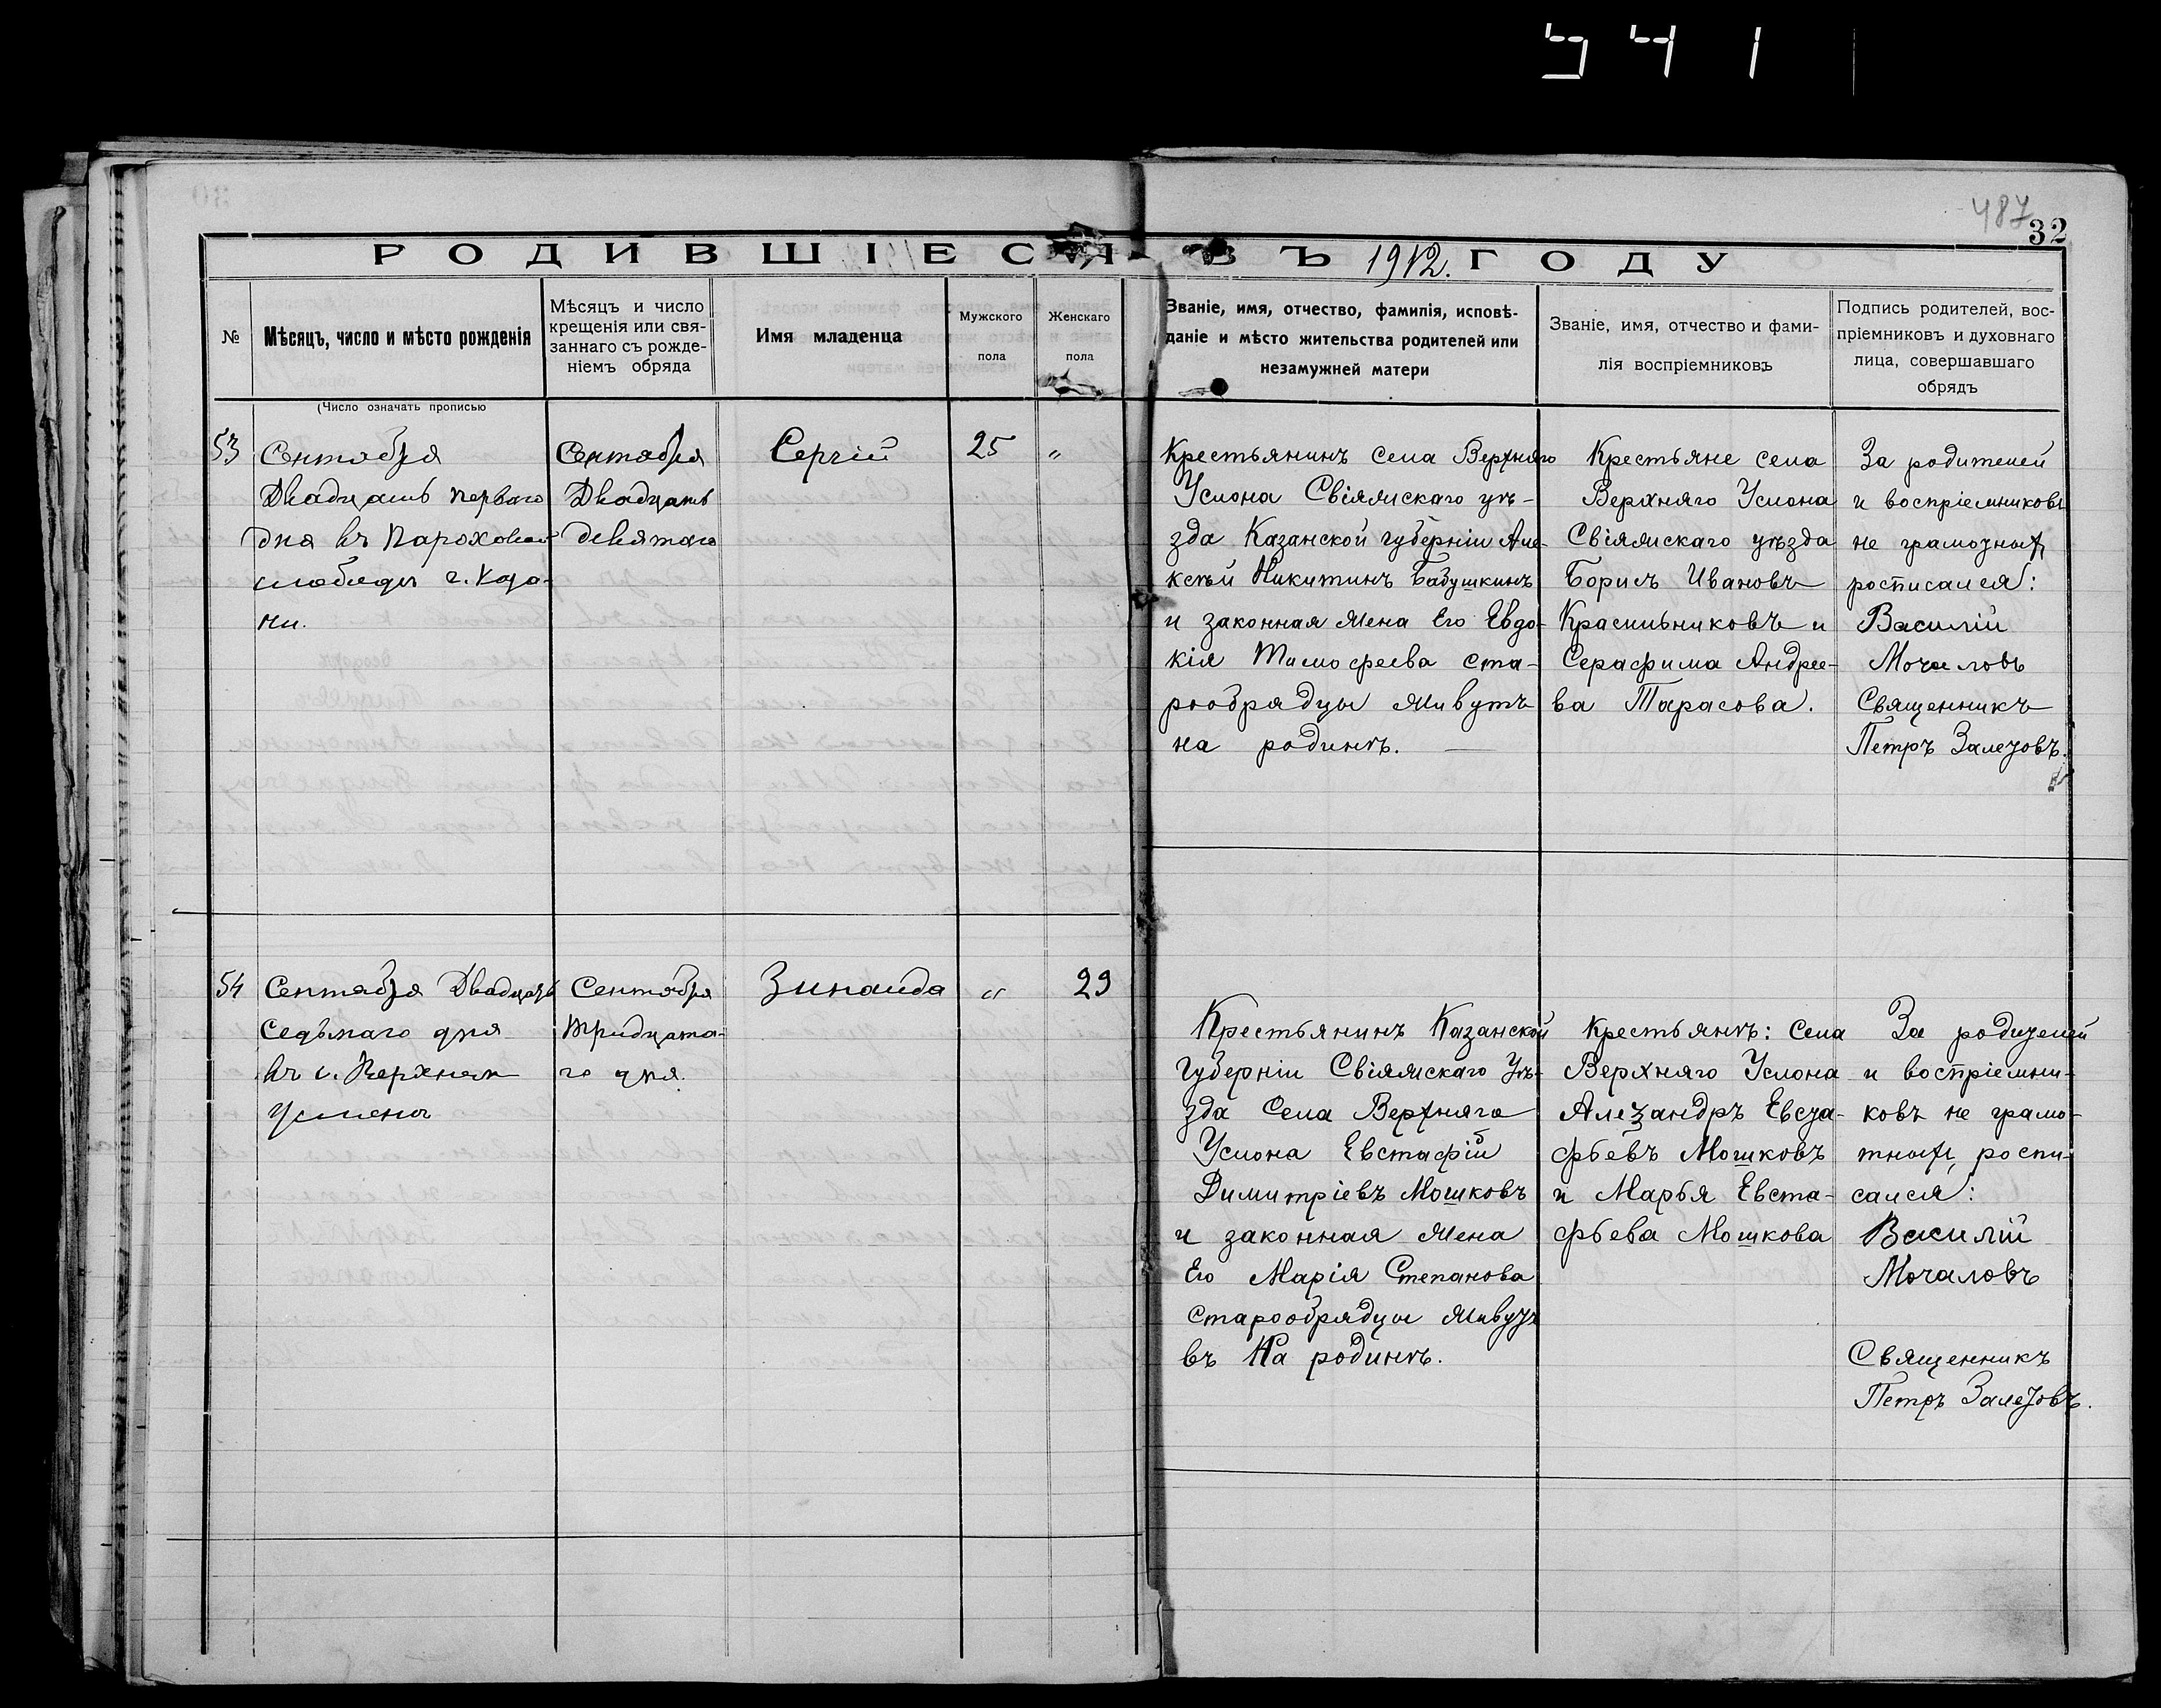 487
32
РОДИВШІЕСЯ ВЪ 1912. ГОДУ
№
Мѣсяцъ, число и мѣсто рожденія
Мѣсяцъ и число
крещенія или свя-
заннаго съ рожде-
ніемъ обряда
Имя младенца
Мужского
пола
Женскаго
пола
Званіе, имя, отчество, фамилія, исповѣ-
даніе и мѣсто жительства родителей или
незамужней матери
Званіе, имя, отчество и фами-
лія воспріемниковъ
Подпись родителей, вос-
пріемниковъ и духовнаго
лица, совершавшаго
обрядъ
(Число означать прописью
53
Сентября
Двадцать перваго
дня въ Пароховой
слободѣ г. Каза-
ни.
Сентября
Двадцать
девятаго
Сергій
25
"
Крестьянинъ села Верхняго
Услона Свіяжскаго уѣ-
зда Казанской губерніи Але-
ксѣй Никитинъ Бабушкинъ
и законная жена Его Евдо-
кія Тимофеева ста-
рообрядцы живутъ
на родинѣ.
Крестьяне села
Верхняго Услона
Свіяжскаго уѣзда
Борисъ Ивановъ
Красильниковъ и
Серафима Андрее-
ва Тарасова.
За родителей
и воспріемниковъ
не грамотных
росписался:
Василій
Мочаловъ
Священникъ
Петръ Залетовъ.
54
Сентября Двадцать
Седьмаго дня
въ с. Верхнем
Услонѣ
Сентября
Тридцата-
го дня.
Зинаида
"
29
Крестьянинъ Казанской
Губерніи Свіяжскаго Уѣ-
зда Села Верхняго
Услона Евстафій
Димитріевъ Мошковъ
и законная жена
Его Марія Степанова
Старообрядцы живутъ
въ На родинѣ.
Крестьянѣ: Села
Верхняго Услона
Александръ Евста-
фьевъ Мошковъ
и Марья Евста-
фьева Мошкова
За родителей
и воспріемни-
ковъ не грамо-
тных, роспи-
сался:
Василій
Мочаловъ
Священникъ
Петръ Залетовъ.